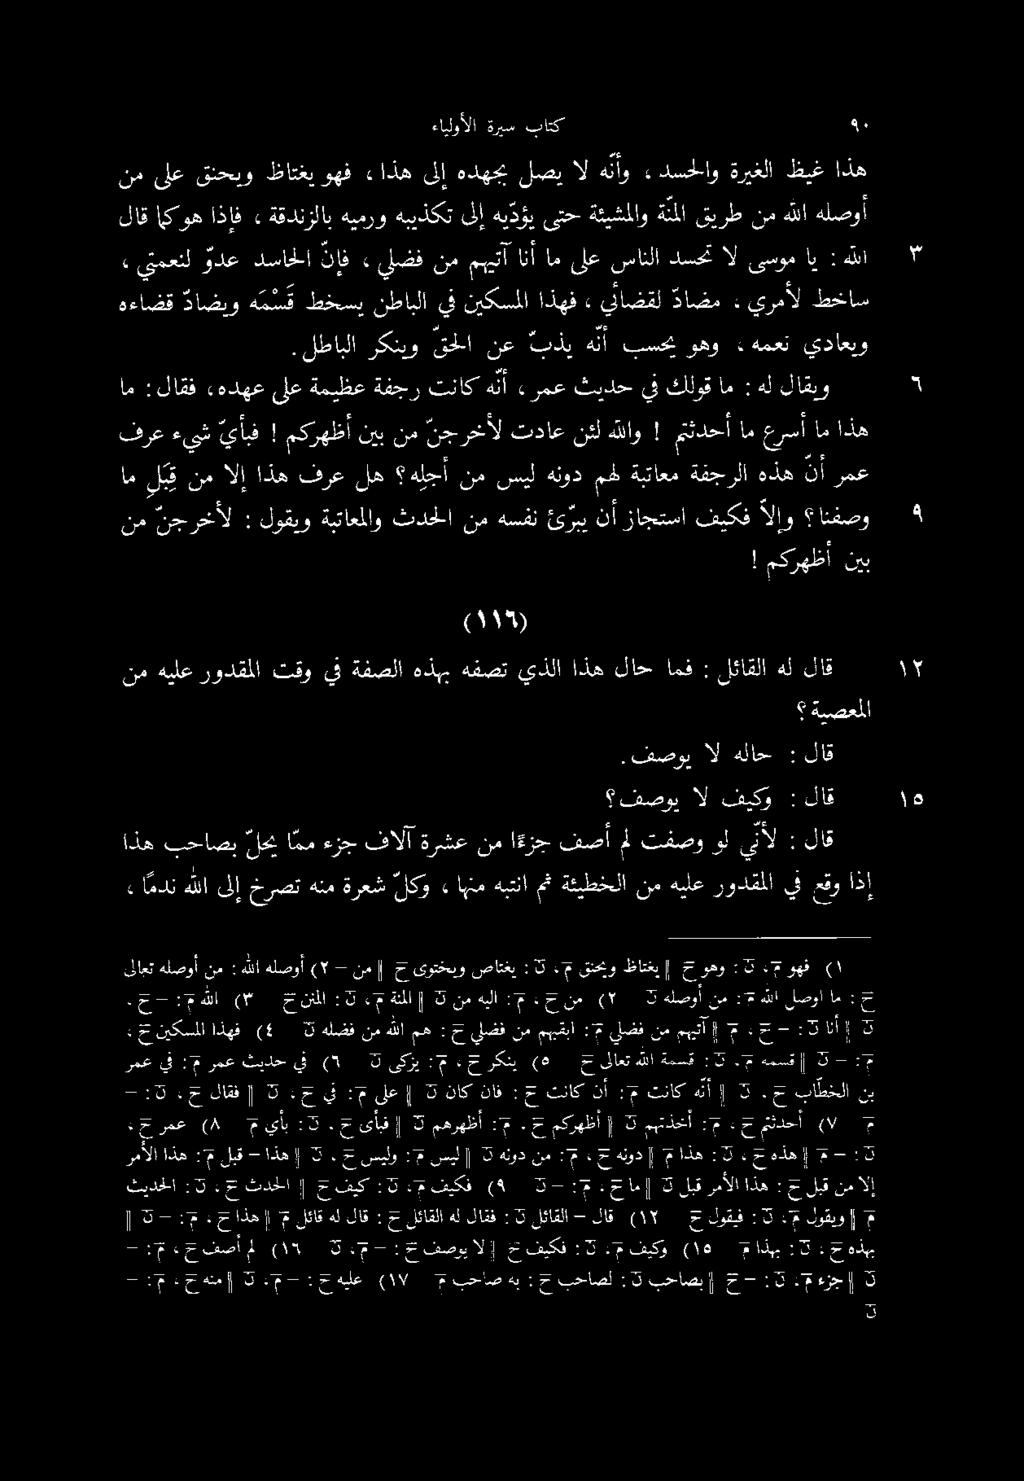 ٩٠ كتاب سيرة الأولياء
هذا غيظ الغيرة والحسد ، وأنّه لا يصل بجهده إلى هذا ، فهو يغتاظ ويحنق على من
أوصله الله من طريق المنّة والمشيئة حتى يؤدّيه إلى تكذيبه ورميه بالزندقة ، فإذا هو كما قال
٣ الله : يا موسى لا تحسد الناس على ما أنا آتيهم من فضلي ، فإنّ الحاسد عدوّ لنعمتي ،
ساخط لأمري ، مضادّ لقضائي ، فهذا المسكين في الباطن يسخط قَسْمَه ويضادّ قضاءه
ويعادي نعمه ، وهو يحسب أنّه يذبّ عن الحقّ وينكر الباطل .
٦ ويقال له : ما قولك في حديث عمر ، أنّه كانت رجفة عظيمة على عهده ، فقال : ما
هذا ما أسرع ما أحدثتم ! والله لئن عادت لأخرجنّ من بين أظهركم ! فبأيّ شيء عرف
عمر أنّ هذه الرجفة معاتبة لهم دونه ليس من أجلِه ؟ هل عرف هذا إلا من قِبَلِ ما
٩ وصفنا ؟ وإلاّ فكيف استجاز أن يبرّئ نفسه من الحدث والمعاتبة ويقول : لأخرجنّ من
بين أظهركم !
(١١٦)
١٢ قال له القائل : فما حال هذا الذي تصفه بهذه الصفة في وقت المقدور عليه من
المعصية ؟
قال : حاله لا يوصف .
١٥ قال : وكيف لا يوصف ؟
قال : لأنّي لو وصفت لم أصف جزءًا من عشرة آلاف جزء ممّا يحلّ بصاحب هذا
إذا وقع في المقدور عليه من الخطيئة ثم انتبه منها ، وكلّ شعرة منه تصرخ إلى الله ندمًا ،
١) فهو م ، ن : وهو ح || يغتاظ ويحنق م ، ن : يغتاص ويختوى ح || من – ٢) أوصله الله : من أوصله تعالى
ح : ما اوصل الله م : من أوصله ن ٢) من ح ، م : اليه من ن || المنة م ، ن : المنن ح ٣) الله م : – ح ،
ن || أنا ن : – ح ، م || آتيهم من فضلي م : ابقيهم من فضلي ح : هم الله من فضله ن ٤) فهذا المسكين ح ،
م : – ن || قسمه م ، ن : قسمة الله تعالى ح ٥) ينكر ح ، م : يزكى ن ٦) في حديث عمر م : في عمر
بن الخطّاب ح ، ن || أنّه كانت م : أن كانت ح : فان كان ن || على م : في ح ، ن || فقال ح ، ن : –
م ٧) أحدثتم ح ، م : أخذتهم ن || أظهركم ح ، م : أظهرهم ن || فبأى ح ، ن : بأي م ٨) عمر ح ،
ن : – م || هذه ح ، ن : هذا م || دونه ح ، م : من دونه ن || ليس م : وليس ح ، ن || هذا – قبل م : هذا الأمر
إلا من قبل ح : هذا الأمر قبل ن || ما ح ، م : – ن ٩) فكيف م ، ن : كيف ح || الحدث ح ، ن : الحديث
م || ويقول م ، ن : فيقول ح ١٢) قال – القائل ن : فقال له القائل ح : قال له قائل م || هذا ح ، م : – ن ||
بهذه ح ، ن : بهذا م ١٥) وكيف م ، ن : فكيف ح || لا يوصف ح : – م ، ن ١٦) لم أصف ح ، م : –
ن || جزء م ، ن : – ح || بصاحب ن : لصاحب ح : به صاحب م ١٧) عليه ح : – م ، ن || منه ح ، م : –
ن